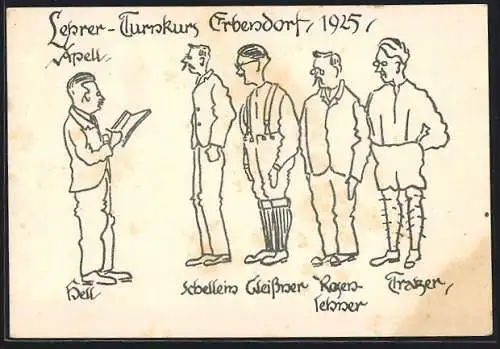 Lehrer-Turnkurs Erbendorf, 1925,
Apell.
Hell
Schellein Gleißner Rosen-
lehner
Tratzer,